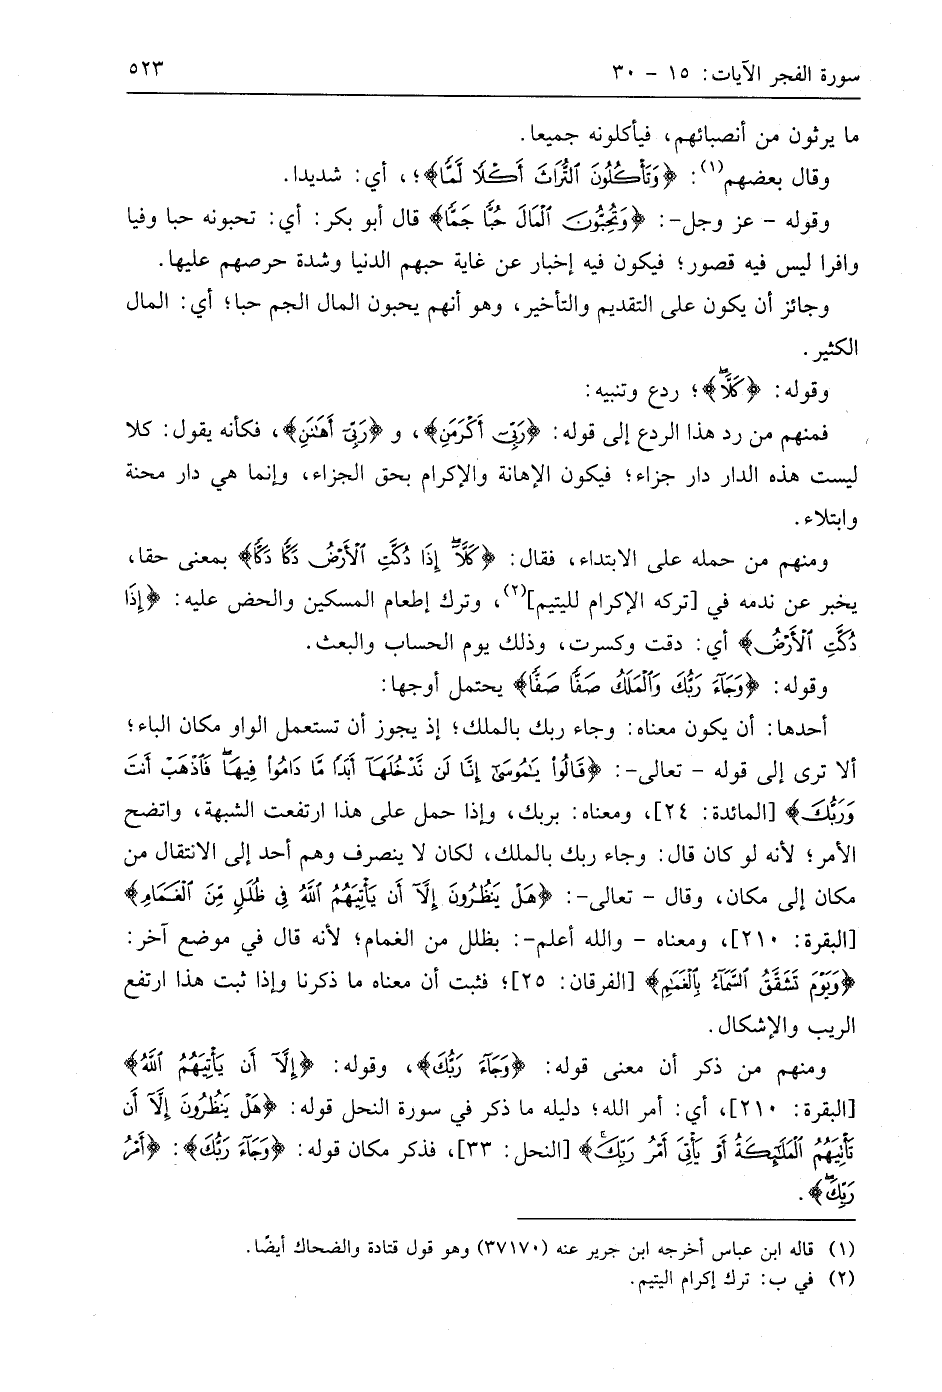 سورة الفجر الآيات: ١٥ - ٣٠ ٥٢٣
ما يرثون من أنصبائهم، فيأكلونه جميعا.
وقال بعضهم(١): ﴿وَتَأْكُلُونَ ٱلتُّرَاثَ أَكْلًا لَّمًّا﴾؛ ، أي: شديدا.
وقوله - عز وجل-: ﴿وَتُحِبُّونَ ٱلْمَالَ حُبًّا جَمًّا﴾ قال أبو بكر: أي: تحبونه حبا وفيا
وافرا ليس فيه قصور؛ فيكون فيه إخبار عن غاية حبهم الدنيا وشدة حرصهم عليها.
وجائز أن يكون على التقديم والتأخير، وهو أنهم يحبون المال الجم حبا؛ أي: المال
الكثير.
وقوله: ﴿كَلَّآ﴾؛ ردع وتنبيه:
فمنهم من رد هذا الردع إلى قوله: ﴿رَبِّىٓ أَكْرَمَنِ﴾، و ﴿رَبِّىٓ أَهَٰنَنِ﴾، فكأنه يقول: كلا
ليست هذه الدار دار جزاء؛ فيكون الإهانة والإكرام بحق الجزاء، وإنما هي دار محنة
وابتلاء.
ومنهم من حمله على الابتداء، فقال: ﴿كَلَّآ إِذَا دُكَّتِ ٱلْأَرْضُ دَكًّا دَكًّا﴾ بمعنى حقا،
يخبر عن ندمه في [تركه الإكرام لليتيم](٢)، وترك إطعام المسكين والحض عليه: ﴿إِذَا
دُكَّتِ ٱلْأَرْضُ﴾ أي: دقت وكسرت، وذلك يوم الحساب والبعث.
وقوله: ﴿وَجَآءَ رَبُّكَ وَٱلْمَلَكُ صَفًّا صَفًّا﴾ يحتمل أوجها:
أحدها: أن يكون معناه: وجاء ربك بالملك؛ إذ يجوز أن تستعمل الواو مكان الباء؛
ألا ترى إلى قوله - تعالى-: ﴿قَالُوا۟ يَٰمُوسَىٰٓ إِنَّا لَن نَّدْخُلَهَآ أَبَدًا مَّا دَامُوا۟ فِيهَا ۖ فَٱذْهَبْ أَنتَ
وَرَبُّكَ﴾ [المائدة: ٢٤]، ومعناه: بربك، وإذا حمل على هذا ارتفعت الشبهة، واتضح
الأمر؛ لأنه لو كان قال: وجاء ربك بالملك، لكان لا ينصرف وهم أحد إلى الانتقال من
مكان إلى مكان، وقال - تعالى-: ﴿هَلْ يَنظُرُونَ إِلَّآ أَن يَأْتِيَهُمُ ٱللَّهُ فِى ظُلَلٍ مِّنَ ٱلْغَمَامِ﴾
[البقرة: ٢١٠]، ومعناه - والله أعلم-: بظلل من الغمام؛ لأنه قال في موضع آخر:
﴿وَيَوْمَ تَشَقَّقُ ٱلسَّمَآءُ بِٱلْغَمَٰمِ﴾ [الفرقان: ٢٥]؛ فثبت أن معناه ما ذكرنا وإذا ثبت هذا ارتفع
الريب والإشكال.
ومنهم من ذكر أن معنى قوله: ﴿وَجَآءَ رَبُّكَ﴾، وقوله: ﴿إِلَّآ أَن يَأْتِيَهُمُ ٱللَّهُ﴾
[البقرة: ٢١٠]، أي: أمر الله؛ دليله ما ذكر في سورة النحل قوله: ﴿هَلْ يَنظُرُونَ إِلَّآ أَن
تَأْتِيَهُمُ ٱلْمَلَٰٓئِكَةُ أَوْ يَأْتِىَ أَمْرُ رَبِّكَ ۚ﴾ [النحل: ٣٣]، فذكر مكان قوله: ﴿وَجَآءَ رَبُّكَ﴾: ﴿أَمْرُ
رَبِّكَ ۖ﴾.
(١) قاله ابن عباس أخرجه ابن جرير عنه (٣٧١٧٠) وهو قول قتادة والضحاك أيضًا.
(٢) في ب: ترك إكرام اليتيم.